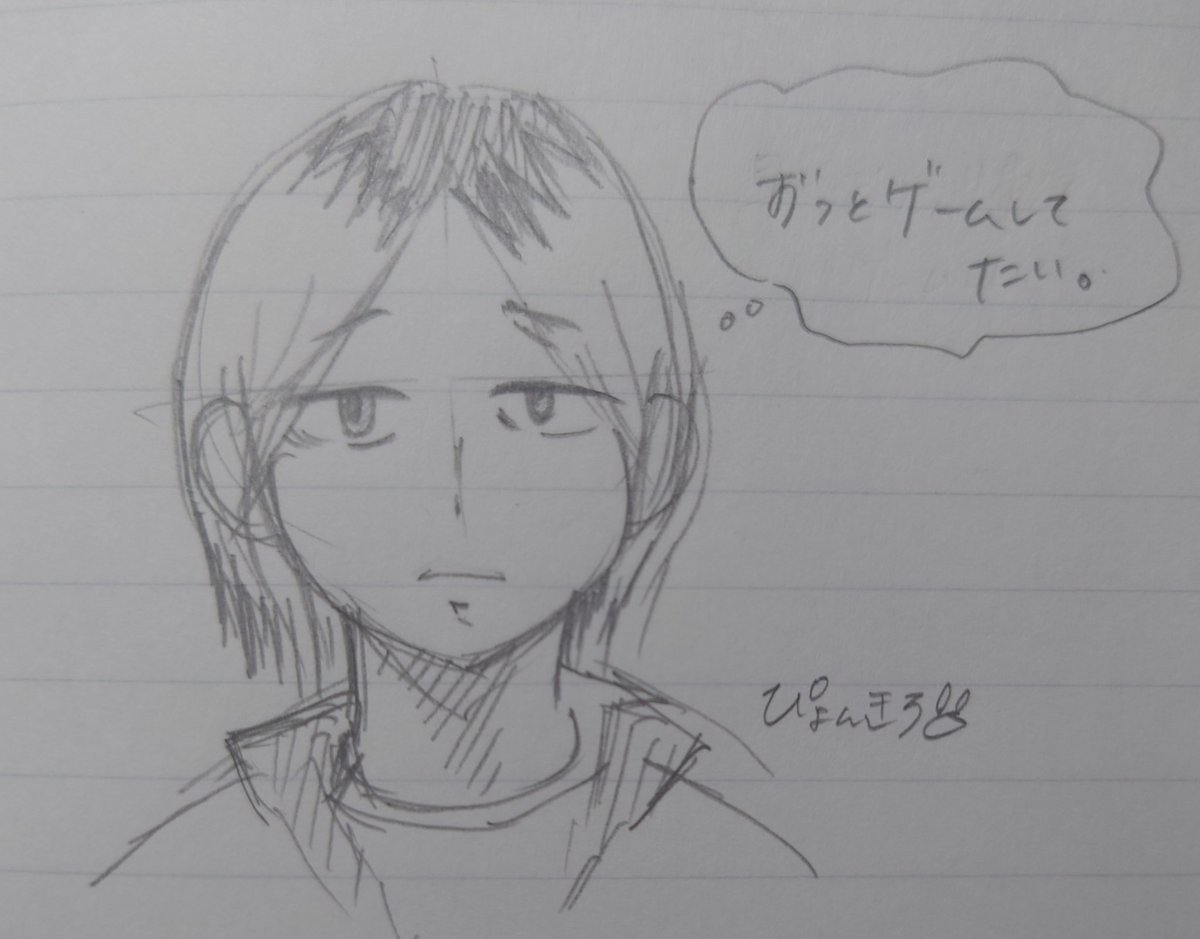 おっとゲームして
たい。
ぴょんきろ